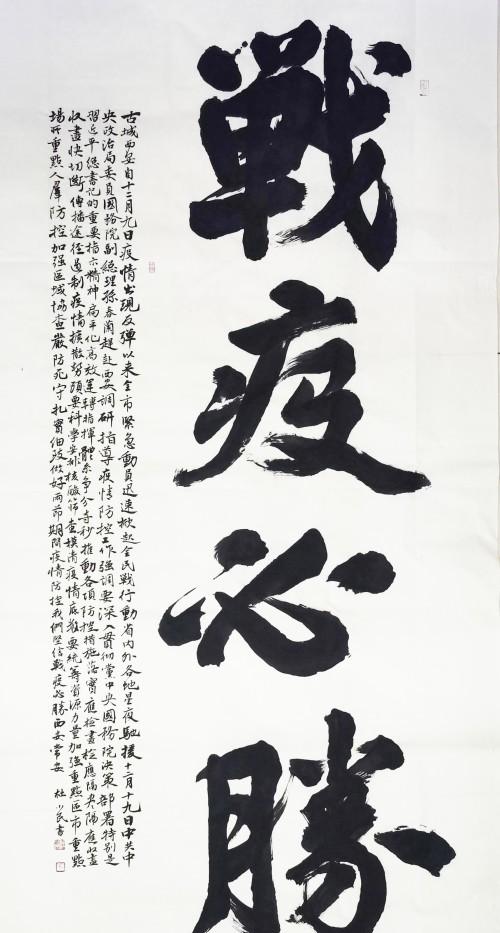 戰疫必勝
古城西安自十二月九日疫情出現反彈以来全市緊急動員迅速掀起全民戰行動省内外各地星夜馳援十二月十九日中共中
央政治局委員國務院副總理孫春蘭趕赴西安調研指導疫情防控工作强調要深入貫彻黨中央國務院决策部署特别是
習近平總書記的重要指示精神扁平化高效運轉指揮體系争分奪秒推動各項防控措施落實應檢盡檢應隔盡隔應收盡
收盡快切斷傳播途徑遏制疫情擴散勢頭要科學安排核酸篩查摸清疫情底數要統籌資源力量加强重點區市重點
場所重點人羣防控加强區域協查嚴防死守扎實細致做好兩節期間疫情防控我們堅信戰疫必勝西安常安
杜小民書